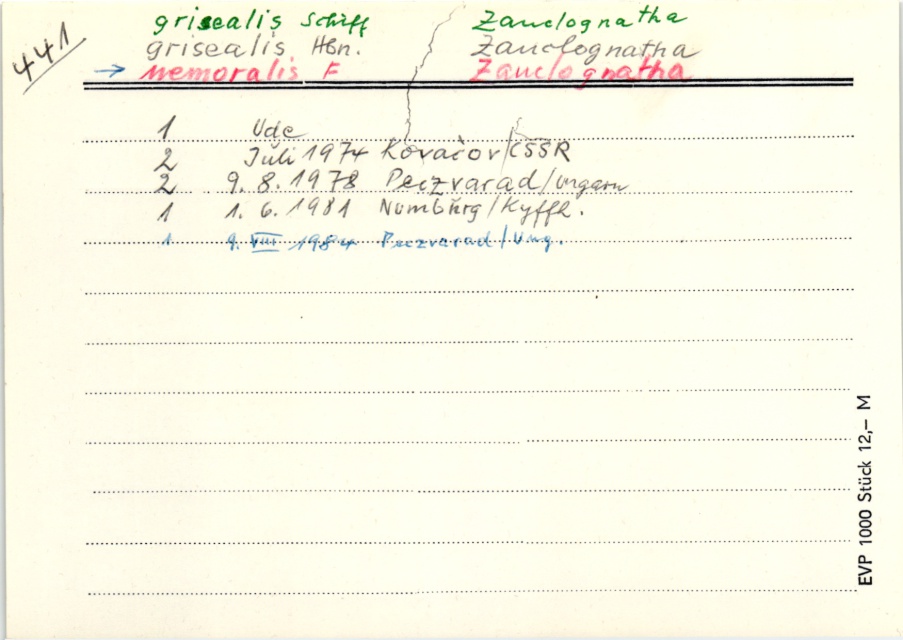 441
grisealis Schiff Zanclognatha
grisealis Hbn. Zanclognatha
→ nemoralis F Zanclognatha
1 Ude
2 Juli 1974 Kovačov/ČSSR
2 9.8.1978 Peczvarad/Ungarn
1 1.6.1981 Numburg/Kyffh.
1 9. VIII 1984 Peczvarad/Ung.
EVP 1000 Stück 12,– M